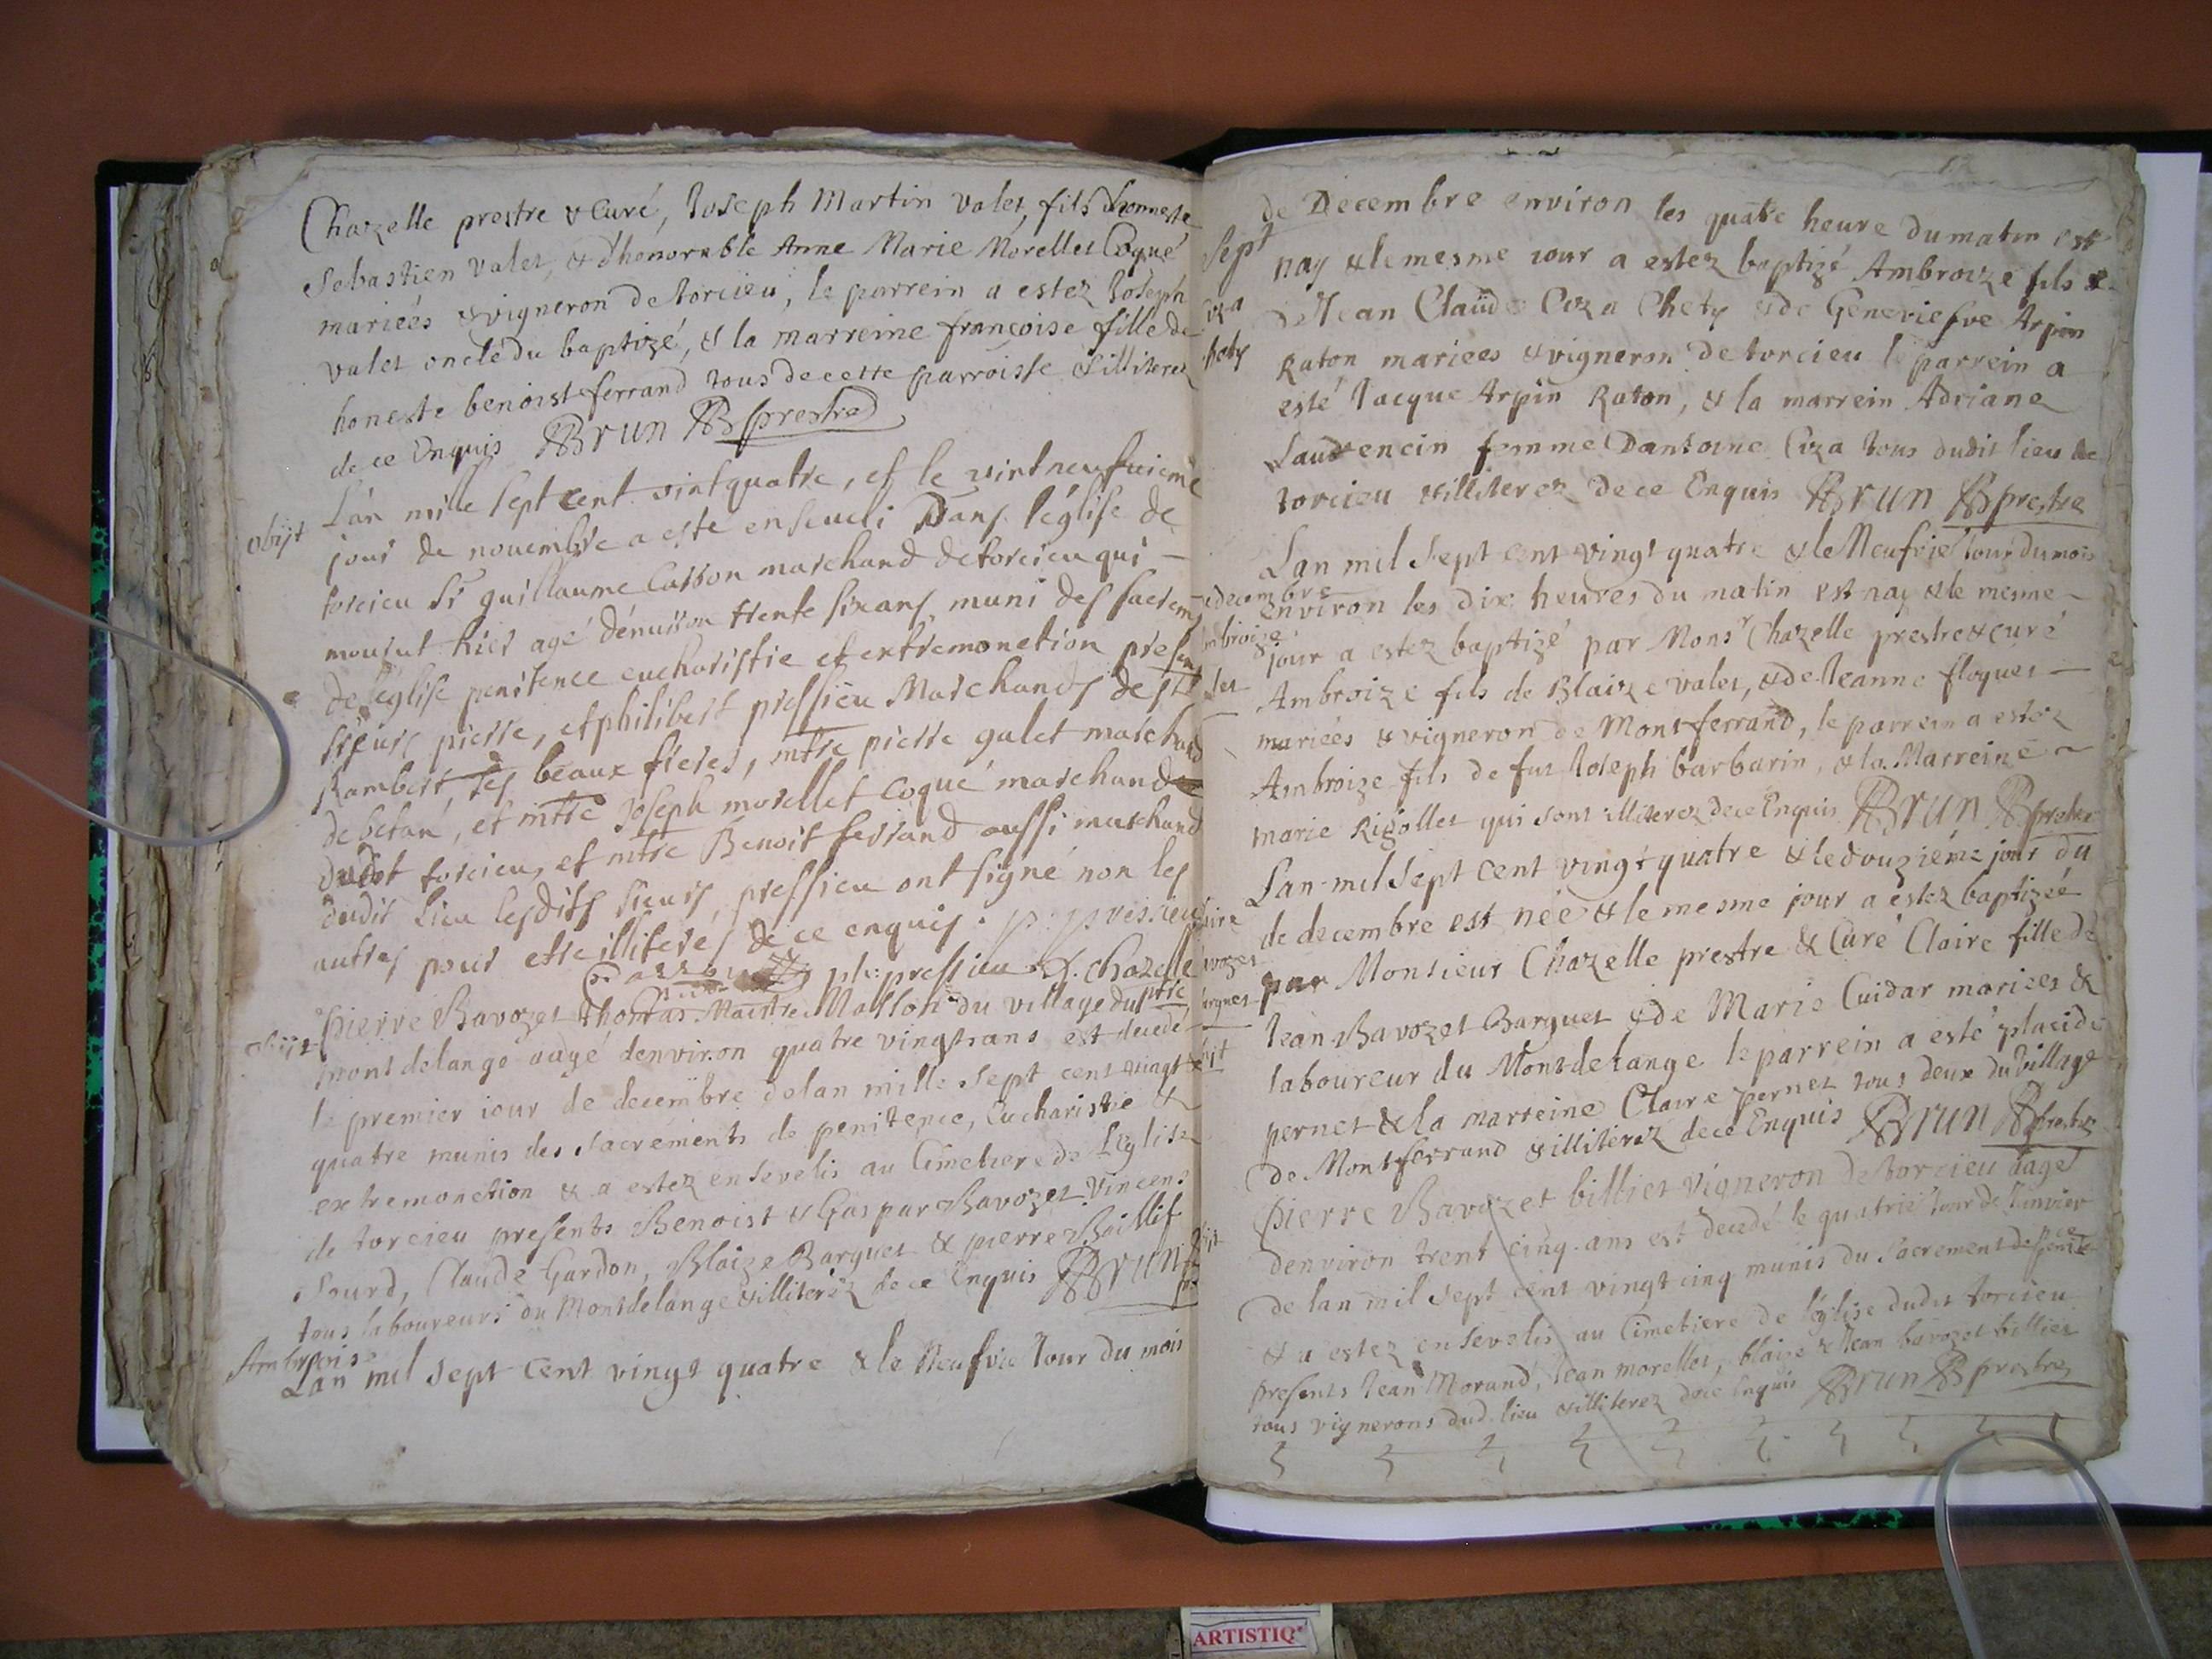 Chazelle prestre & Curé, Joseph Martin valet, fils dhonneste
Sebastien valet, & d'honorable Anne Marie Morellet Coqué
mariéés & vigneron de torcieu, le parrein a estez Joseph
valet oncle du baptizé, & la marreine françoise fille de
honeste benoist ferrand tous de cette parroisse & illiterez
de ce Enquis Brun prestre
obijt
L'an mille sept cent vint quatre, et le vint neufuieme
jour de nouembre a este enseueli Dans l'église de
torcieu Sr guillaume Casson marchand de torcieu qui
mourut hier agé dénuiron trente six ans muni des sacrem
de l'église penitence eucharistie et extremonction presen
sieurs pierre, et philibert pressieu Marchands de st
Rambert, ses beaux freres, mtre pierre galet marchand
de betan, et mtre Joseph morellet coqué marchand
dudit torcieu, et mtre Benoit ferrand aussi marchand
dudit lieu lesdits sieurs pressieu ont signé non les
autres pour estre illiterés de ce enquis. p. pressieu
ph: pressieu Chazelle
ptre
obijt
Pierre Bavozet Thomas Maitre Masson du village du
mont delange aagé denviron quatre vingt ans est decedé
le premier iour de decembre de lan mille sept cent vingt
quatre munis des sacrements de penitence, Eucharistie &
extremonction & a estez ensevelis au Cimetiere de l'Eglise
de torcieu presents Benoist & Gaspar Bavozet Vincent
Sourd, Claude Gardon, Blaize Barquet & pierre Baillif
tous laboureurs du Montdelange & illiteréz de ce Enquis Brun
Ambroise
Lan mil sept cent vingt quatre & le Neufvie Jour du mois
de Decembre environ les quatre heure du matin est
Sept
nay & le mesme iour a estez baptizé Ambroize fils
Coza
de Jean Claude Coza Chety & de Geneviefve Arpin
chety
Raton mariees & vigneron de torcieu le parrein a
esté Jacque Arpin Raton, & la marrein Adriane
Laurencin femme Dantoine Coza tous dudit lieu de
torcieu & illiterez de ce Enquis Brun prestre
Lan mil sept cent vingt quatre & le Neufvie Jour du mois
decembre
environ les dix heures du matin est nay & le mesme
mbroize
jour a estez baptizé par Monsr Chazelle prestre & curé
let
Ambroize fils de Blaize valet, & de Jeanne floquet
mariéés & vigneron de Montferrand, le parrein a estez
Ambroize fils de fut Joseph barbarin, & la Marreine
marie Rigollet qui sont illiterez de ce Enquis Brun prestre
Lan mil sept cent vingt quatre & le douziéme jour du
aire
de decembre est néé & le mesme jour a estez baptizéé
vozet
par Monsieur Chazelle prestre & Curé Claire fille de
arquet
Jean Bavozet Barquet & de Marie Cuidar mariees &
laboureur du Montdelange le parrein a esté placide
pernet & la marreine Claire pernet tous deux du village
de Montferrand & illiterez de ce Enquis Brun prestre
Pierre Bavozet billiet vigneron de torcieu aagé
denviron trent cinq ans est decedé le quatrie Jour de Janvier
de lan mil sept cent vingt cinq munis du Sacrement de penitence
& a estez ensevelis au Cimetiere de l'église dudit torcieu
presents Jean Morand, Jean morellet, blaize & Jean bavozet billiet
tous vignerons dud. lieu & illiterez de ce Enquis Brun prestre
ARTISTIQ